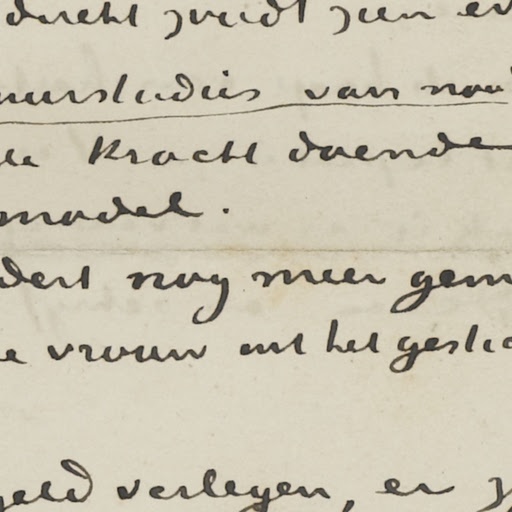 ducht zuidt zien en
uurstudies van naa
le Kracht doende
model.
dert nog meer gem
e vrouw uit het gesti
geld verlegen, er z